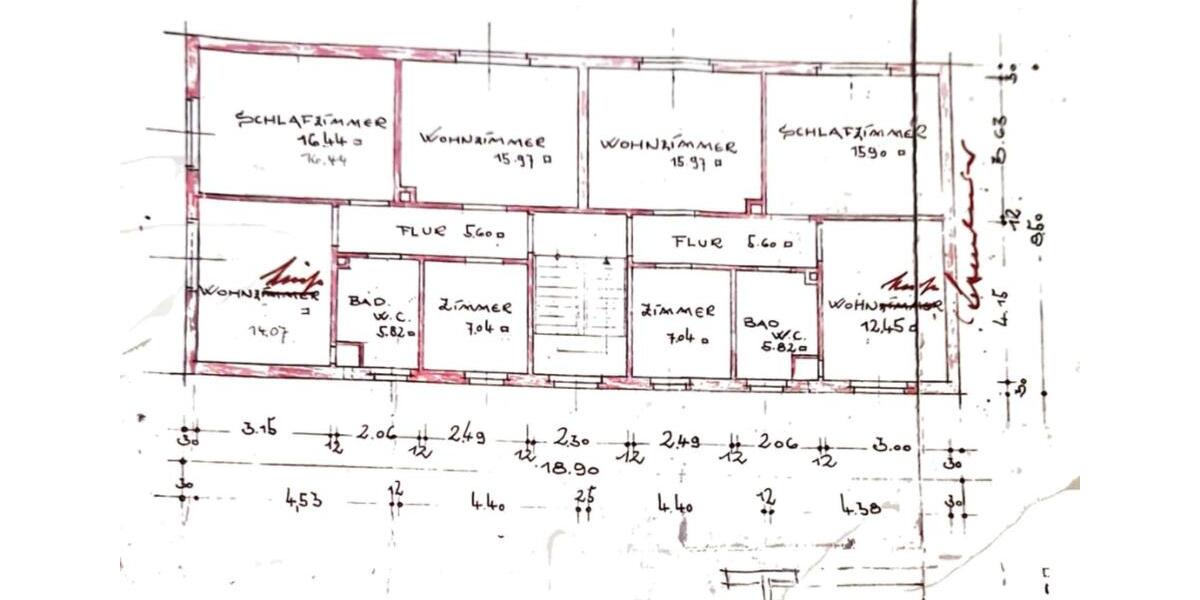 SCHLAFZIMMER
16.44
16.44
WOHNZIMMER
15.97
WOHNZIMMER
15.97
SCHLAFZIMMER
15.90
FLUR 5.60
FLUR 5.60
WOHNZIMMER
14.07
BAD
W.C.
5.82
ZIMMER
7.04
ZIMMER
7.04
BAD
W.C.
5.82
WOHNZIMMER
12.45
30
3.63
12
8.50
4.15
30
30 3.15 12 2.06 12 2.49 12 2.30 12 2.49 12 2.06 12 3.00 30
18.90
30 4,53 12 4.40 25 4.40 12 4.38 30